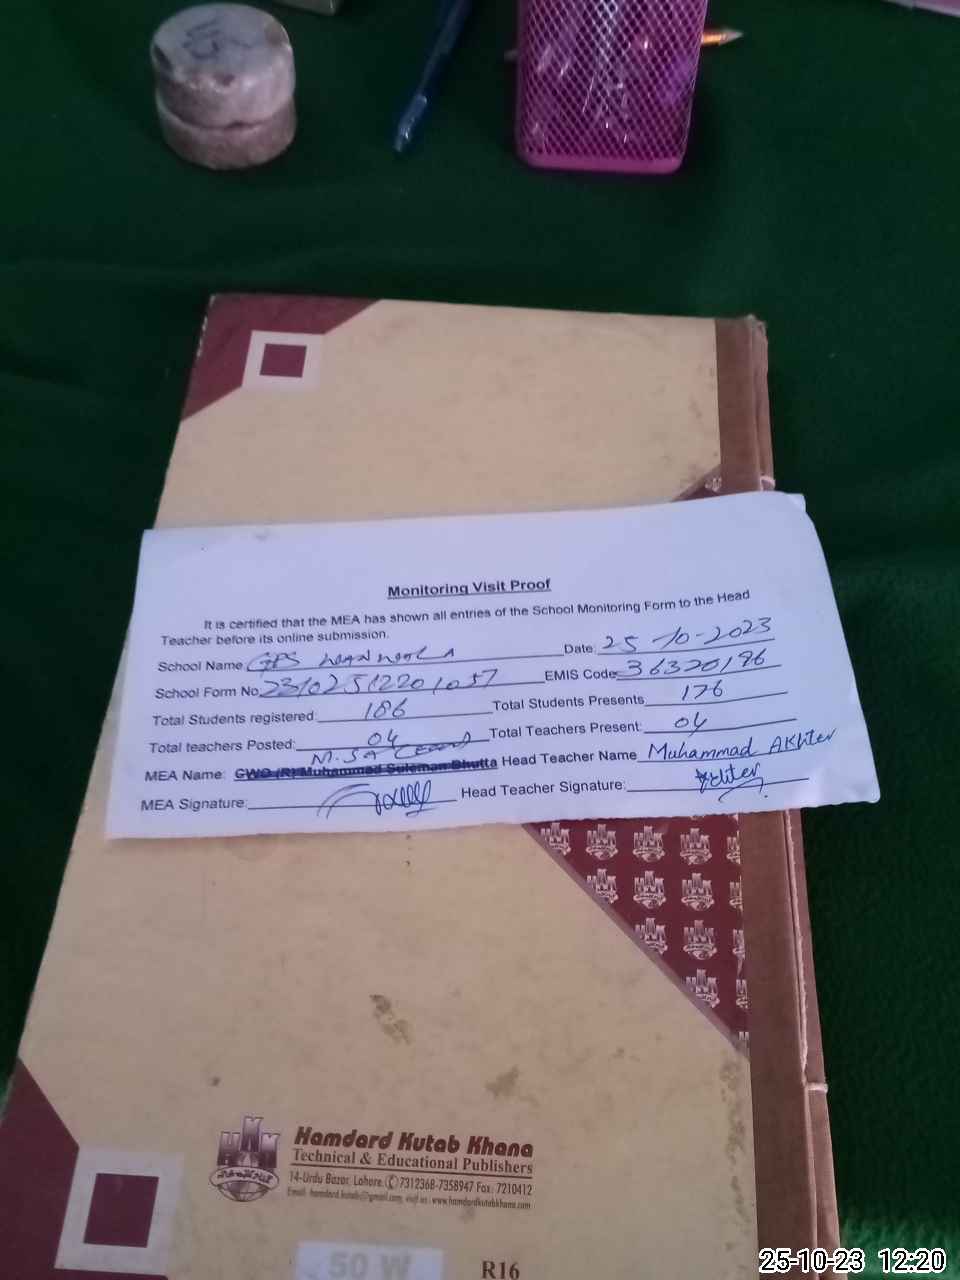 Monitoring Visit Proof
It is certified that the MEA has shown all entries of the School Monitoring Form to the Head
Teacher before its online submission.
School Name GPS Date: 25-10-2023
School Form No. 23102512201057 EMIS Code 36320196
Total Students registered: 186 Total Students Presents 176
Total teachers Posted: 04 Total Teachers Present: 04
MEA Name: GWO (R) Muhammad Suleman Bhutta Head Teacher Name Muhammad Akhter
MEA Signature: Head Teacher Signature: Akhter
Hamdard Kutab Khana
Technical & Educational Publishers
14-Urdu Bazar, Lahore. 7312368-7358947 Fax: 7210412
Email: hamdard.kutab@gmail.com, visit us: www.hamdardkutabkhana.com
50 W R16
25-10-23 12:20